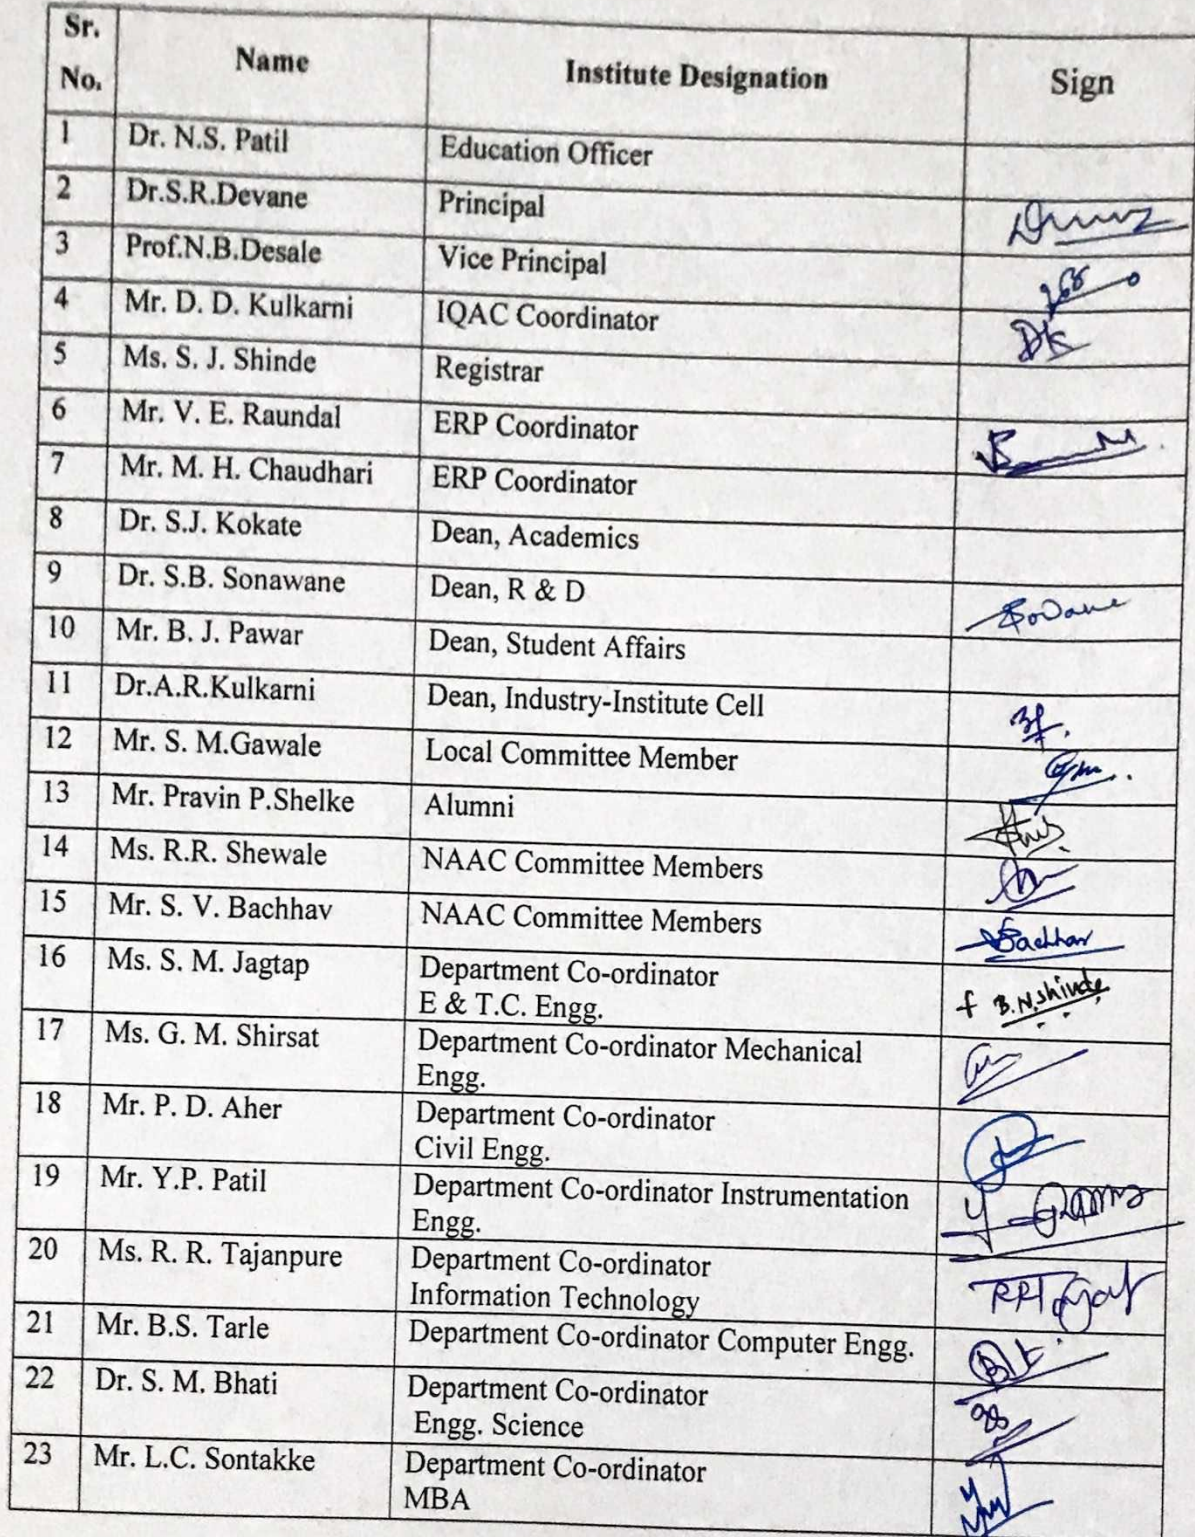 Sr. No. Name Institute Designation Sign
1 Dr. N.S. Patil Education Officer
2 Dr.S.R.Devane Principal
3 Prof.N.B.Desale Vice Principal
4 Mr. D. D. Kulkarni IQAC Coordinator DK
5 Ms. S. J. Shinde Registrar
6 Mr. V. E. Raundal ERP Coordinator
7 Mr. M. H. Chaudhari ERP Coordinator
8 Dr. S.J. Kokate Dean, Academics
9 Dr. S.B. Sonawane Dean, R & D
10 Mr. B. J. Pawar Dean, Student Affairs
11 Dr.A.R.Kulkarni Dean, Industry-Institute Cell
12 Mr. S. M.Gawale Local Committee Member
13 Mr. Pravin P.Shelke Alumni
14 Ms. R.R. Shewale NAAC Committee Members
15 Mr. S. V. Bachhav NAAC Committee Members Bachhav
16 Ms. S. M. Jagtap Department Co-ordinator
E & T.C. Engg. f B.N.Shinde
17 Ms. G. M. Shirsat Department Co-ordinator Mechanical
Engg.
18 Mr. P. D. Aher Department Co-ordinator
Civil Engg.
19 Mr. Y.P. Patil Department Co-ordinator Instrumentation
Engg.
20 Ms. R. R. Tajanpure Department Co-ordinator
Information Technology
21 Mr. B.S. Tarle Department Co-ordinator Computer Engg.
22 Dr. S. M. Bhati Department Co-ordinator
Engg. Science
23 Mr. L.C. Sontakke Department Co-ordinator
MBA